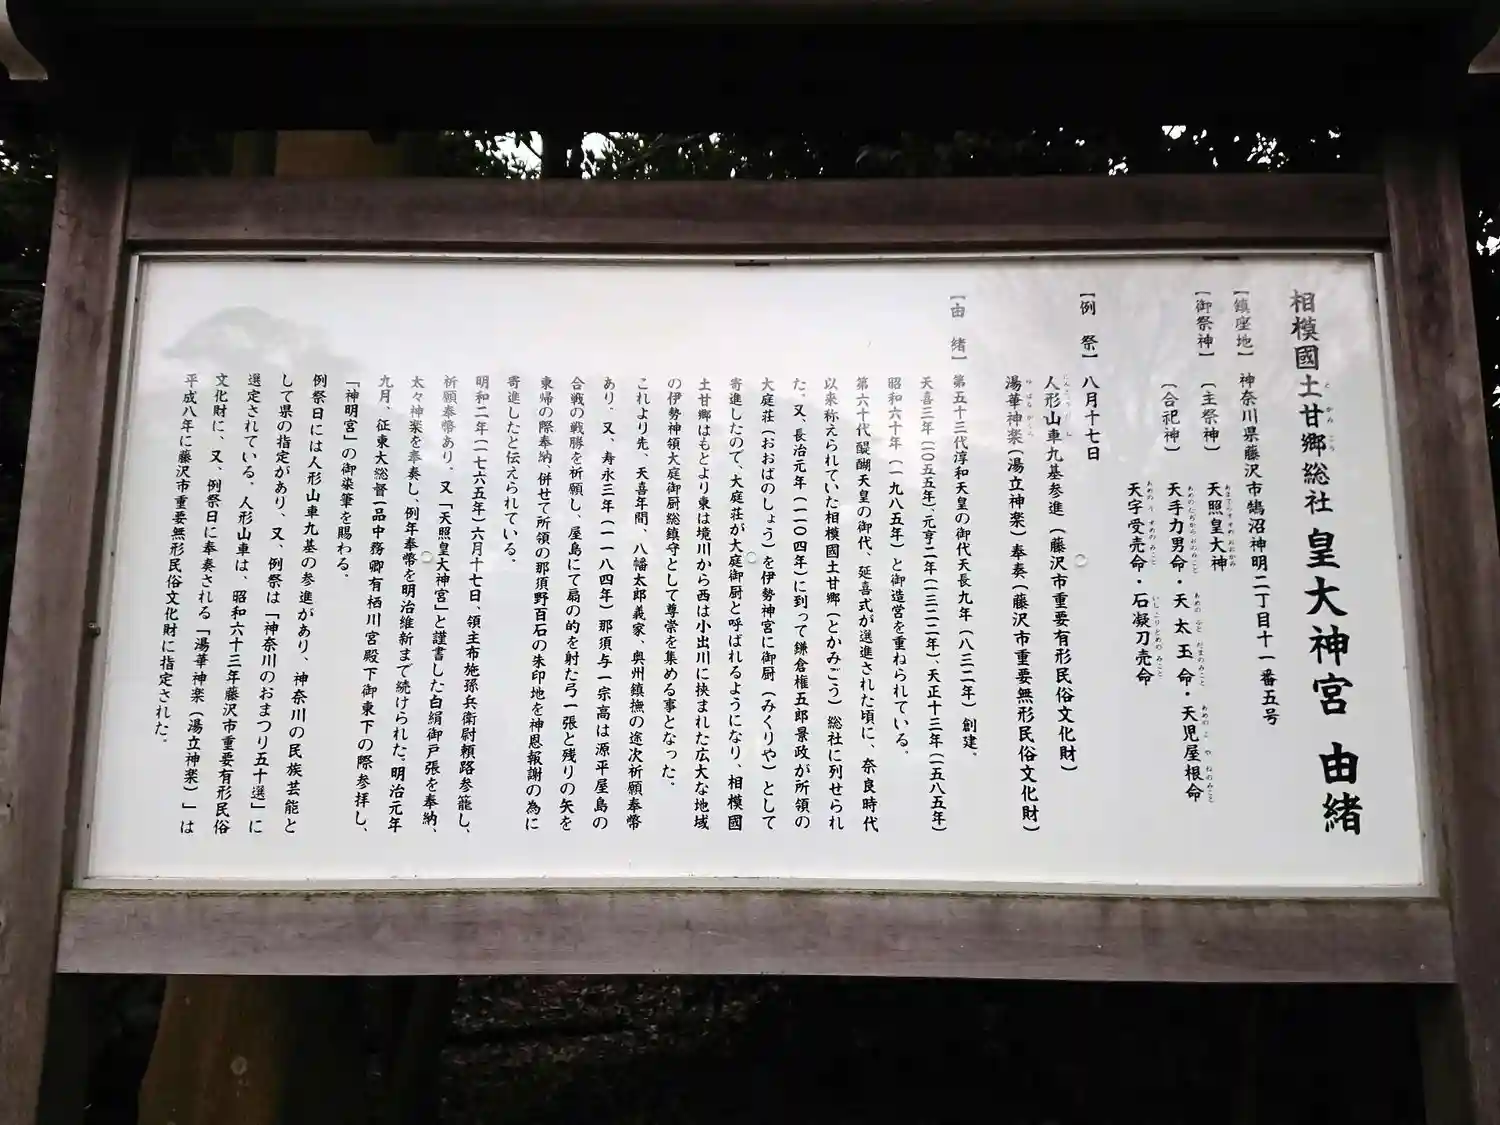 相模國土甘郷総社 皇大神宮 由緒
【鎮座地】 神奈川県藤沢市鵠沼神明二丁目十一番五号
【御祭神】 (主祭神) 天照皇大神
(合祀神) 天手力男命・天太玉命・天児屋根命
天宇受売命・石凝刀売命
【例 祭】 八月十七日
人形山車九基参進(藤沢市重要有形民俗文化財)
湯華神楽(湯立神楽)奉奏(藤沢市重要無形民俗文化財)
【由 緒】 第五十三代淳和天皇の御代天長九年(八三二年)創建。
天喜三年(一〇五五年)、元亨二年(一三二二年)、天正十三年(一五八五年)
昭和六十年(一九八五年)と御造営を重ねられている。
第六十代醍醐天皇の御代、延喜式が選進された頃に、奈良時代
以来称えられていた相模國土甘郷(とかみごう)総社に列せられ
た。又、長治元年(一一〇四年)に到って鎌倉権五郎景政が所領の
大庭荘(おおばのしょう)を伊勢神宮に御厨(みくりや)として
寄進したので、大庭荘が大庭御厨と呼ばれるようになり、相模國
土甘郷はもとより東は境川から西は小出川に挟まれた広大な地域
の伊勢神領大庭御厨総鎮守として尊崇を集める事となった。
これより先、天喜年間、八幡太郎義家、奥州鎮撫の途次祈願奉幣
あり。又、寿永三年(一一八四年)那須与一宗高は源平屋島の
合戦の戦勝を祈願し、屋島にて扇の的を射た弓一張と残りの矢を
東帰の際奉納、併せて所領の那須野百石の朱印地を神恩報謝の為に
寄進したと伝えられている。
明和二年(一七六五年)六月十七日、領主布施孫兵衛尉頼路参籠し、
祈願奉幣あり。又「天照皇大神宮」と謹書した白絹御戸張を奉納、
太々神楽を奉奏し、例年奉幣を明治維新まで続けられた。明治元年
九月、征東大総督一品中務卿有栖川宮殿下御東下の際参拝し、
「神明宮」の御染筆を賜わる。
例祭日には人形山車九基の参進があり、神奈川の民族芸能と
して県の指定があり、又、例祭は「神奈川のおまつり五十選」に
選定されている。人形山車は、昭和六十三年藤沢市重要有形民俗
文化財に、又、例祭日に奉奏される「湯華神楽(湯立神楽)」は
平成八年に藤沢市重要無形民俗文化財に指定された。